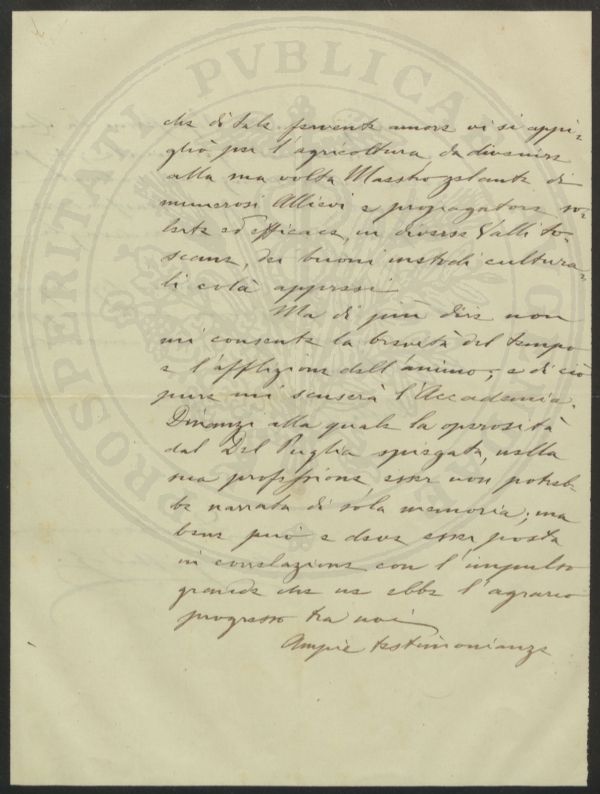 PROSPERITATI PVBLICAE
che di tale fervente amore vi si appi-
gliò per l'agricoltura, da divenire
alla sua volta Maestro zelante di
numerosi Allievi e propagatore so-
lerte ed efficace, in diverse Valli to-
scane, dei buoni metodi cultura-
li colà appresi.
Ma di più dire non
mi consente la brevità del tempo
e l'afflizione dell'animo; e di ciò
pure mi scuserà l'Accademia.
Dinanzi alla quale la operosità
dal Del Puglia spiegata, nella
sua professione, esser non potreb-
be narrata di sola memoria; ma
bene può e deve esser posta
in correlazione con l'impulso
grande che ne ebbe l'agrario
progresso tra noi.
Ampie testimonianze